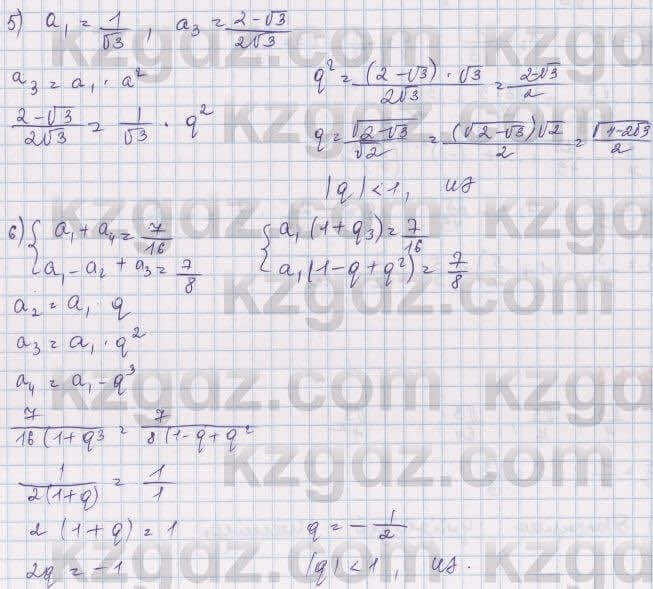 5) a₁ = 1/√3 , a₃ = (2-√3)/(2√3)
a₃ = a₁ · a²
(2-√3)/(2√3) = 1/√3 · q²
q² = ((2-√3) · √3)/(2√3) = (2-√3)/2
q = √(2-√3)/√2 = ((√(2-√3))√2)/2 = √(4-2√3)/2
|q| < 1, из
6) { a₁ + a₄ = 7/16
a₁ - a₂ + a₃ = 7/8
{ a₁ (1+q₃) = 7/16
a₁ (1-q+q²) = 7/8
a₂ = a₁ · q
a₃ = a₁ · q²
a₄ = a₁ - q³
7/(16(1+q3 = 7/(8(1-q+q²
1/(2(1+q)) = 1/1
2 (1+q) = 1
2q = -1
q = -1/2
|q| < 1, из.
kzgdz.com